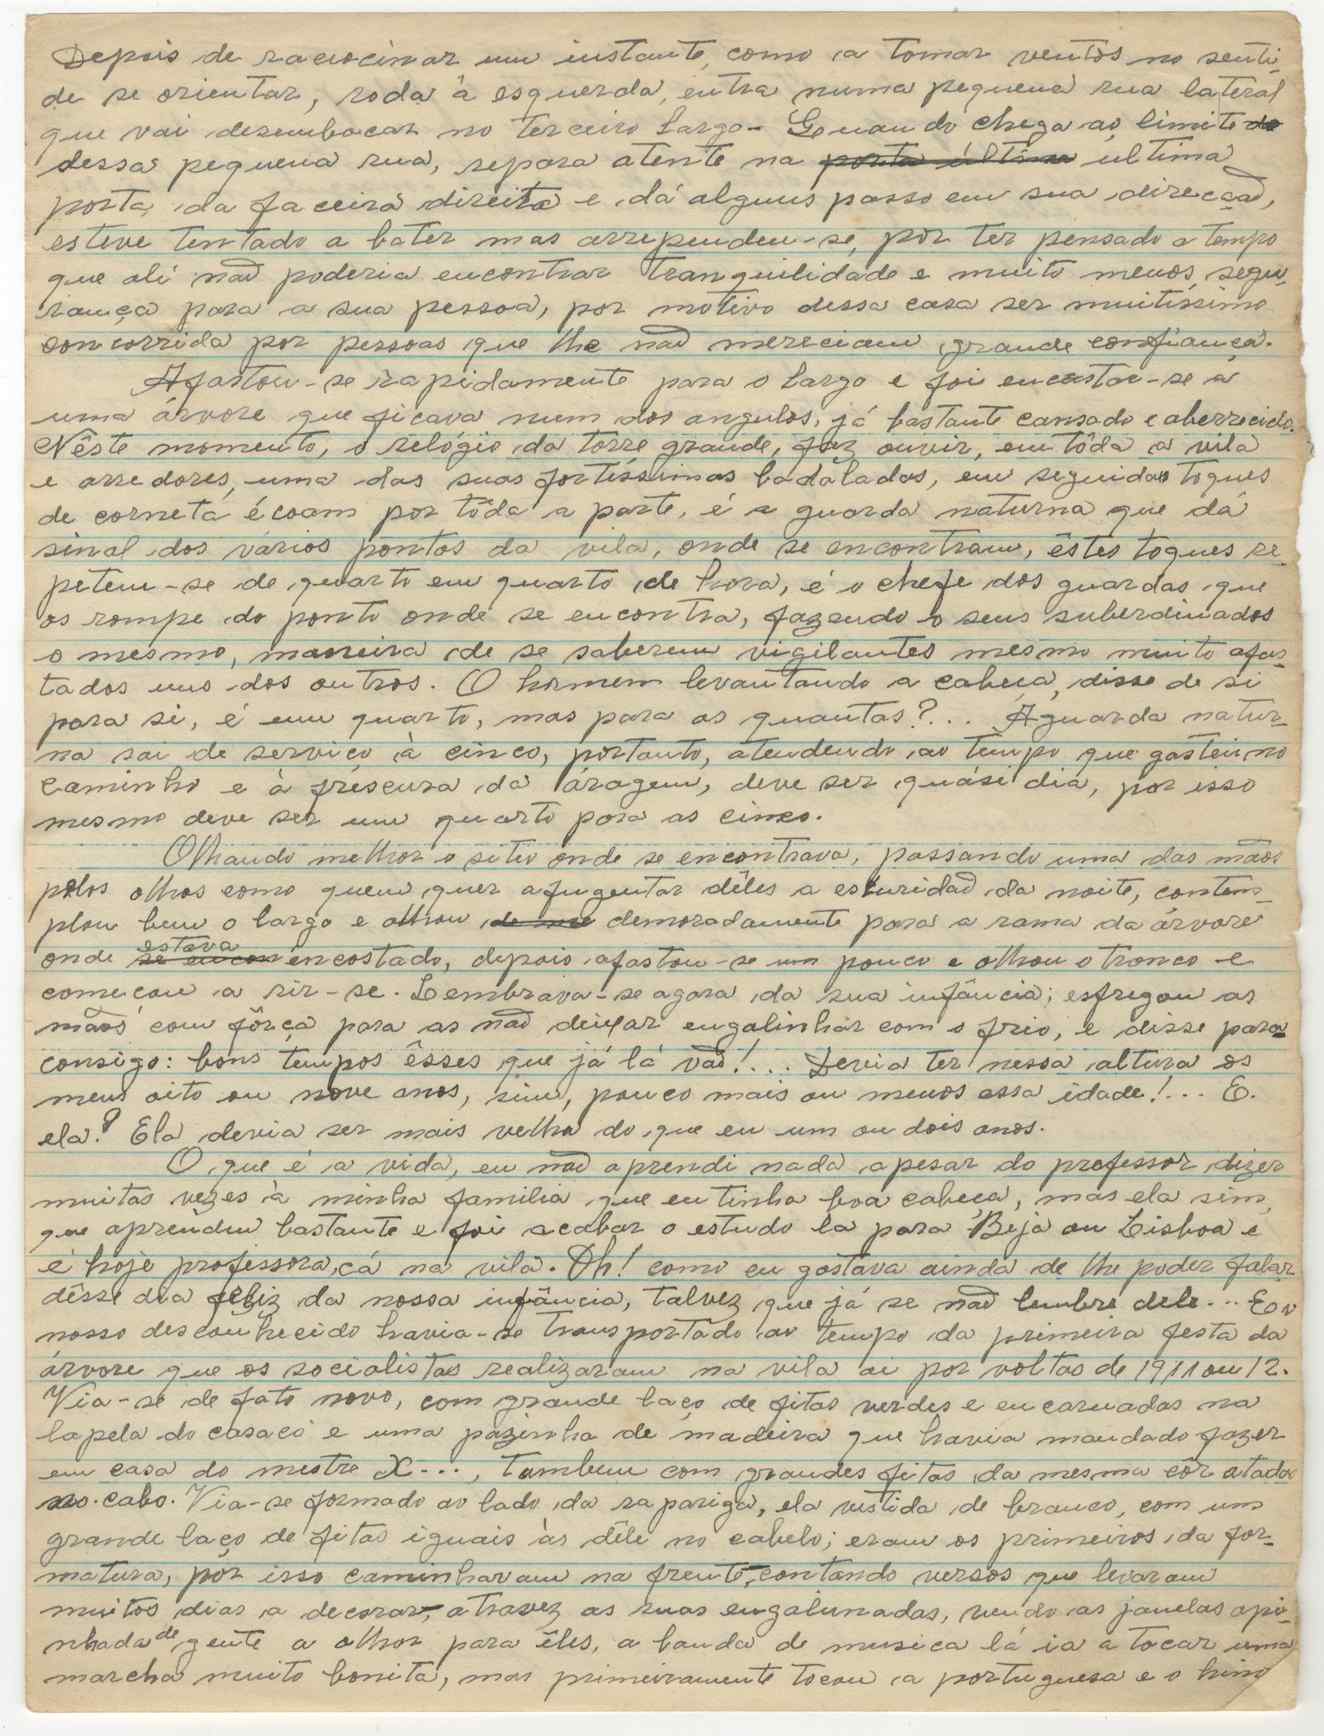 Depois de raciocinar um instante, como a tomar ventos no senti-
de se orientar, roda à esquerda, entra numa pequena rua lateral
que vai desembocar no terceiro largo. Quando chega ao limite do
dessa pequena rua, repara atente na porta última ultima
porta da faceira direita e dá alguns passo em sua direcção,
esteve tentado a bater mas arrependeu-se, por ter pensado a tempo
que ali não poderia encontrar tranquilidade e muito menos, segu-
rança para a sua pessoa, por motivo dessa casa ser muitíssimo
concorrida por pessoas que lhe não mereciam grande confiança.
Afastou-se rapidamente para o largo e foi encostar-se a
uma árvore que ficava num dos angulos, já bastante cansado e aborrecido.
Nêste momento, o relógio da torre grande, faz ouvir, em tôda a vila
e arredores, uma das suas fortíssimas badaladas, em seguida toques
de corneta écoam por tôda a parte, é a guarda naturna que dá
sinal dos vários pontos da vila, onde se encontram, êstes toques re-
petem-se de quarto em quarto de hora, é o chefe dos guardas que
os rompe do ponto onde se encontra, fazendo o seus suberdinados
o mesmo, maneira de se saberem vigilantes mesmo muito afas-
tados uns dos outros. O homem levantando a cabeca, disse de si
para si, é um quarto, mas para as quantas?... A guarda natur-
na sai de serviço à cinco, portanto, atendendo ao tempo que gastei no
caminho e à frescura da áragem, deve ser quási dia, por isso
mesmo deve ser um quarto para as cinco.
Olhando melhor o sitio onde se encontrava, passando uma das mãos
pelos olhos como quem quer afugentar dêles a escuridão da noite, contem-
plou bem o largo e olhou demoradamente para a rama da árvore
onde se encon estava encostado, depois afastou-se um pouco e olhou o tronco e
começou a rir-se. Lembrava-se agora da sua infância; esfregou as
mãos com fôrça para as não deixar engalinhar com o frio, e disse para
consigo: bons tempos êsses que já lá vão!... Devia ter nessa altura os
meus oito ou nove anos, sim, pouco mais ou menos essa idade!... E.
ela? Ela devia ser mais velha do que eu um ou dois anos.
O que é a vida, eu não aprendi nada apesar do professor dizer
muitas vezes à minha familia que eu tinha boa cabeca, mas ela sim,
que aprendeu bastante e foi acabar o estudo lá para Beja ou Lisboa e
é hoje professora, cá na vila. Oh! como eu gostava ainda de lhe poder falar
dêsse dia feliz da nossa infância, talvez que já se não lembre dele... E o
nosso desconhecido havia-se transportado ao tempo da primeira festa da
árvore que os socialistas realizaram na vila ai por voltas de 1911 ou 12.
Via-se de fato novo, com grande laço de fitas verdes e encarnadas na
lapela do casaco e uma pàzinha de madeira que havia mandado fazer
em casa do mestre X..., tambem com grandes fitas da mesma côr atadas
no cabo. Via-se formado ao lado da rapariga, ela vestida de branco, com um
grande laço de fitas iguais às dêle no cabelo; eram os primeiros da for-
matura, por isso caminhavam na frente, contando versos que levaram
muitos dias a decorar, atravez as ruas engalanadas, vendo as janelas api-
nhada de gente a olhar para êles, a banda de musica lá ia a tocar uma
marcha muito bonita, mas primeiramente tocou a portuguesa e o hino